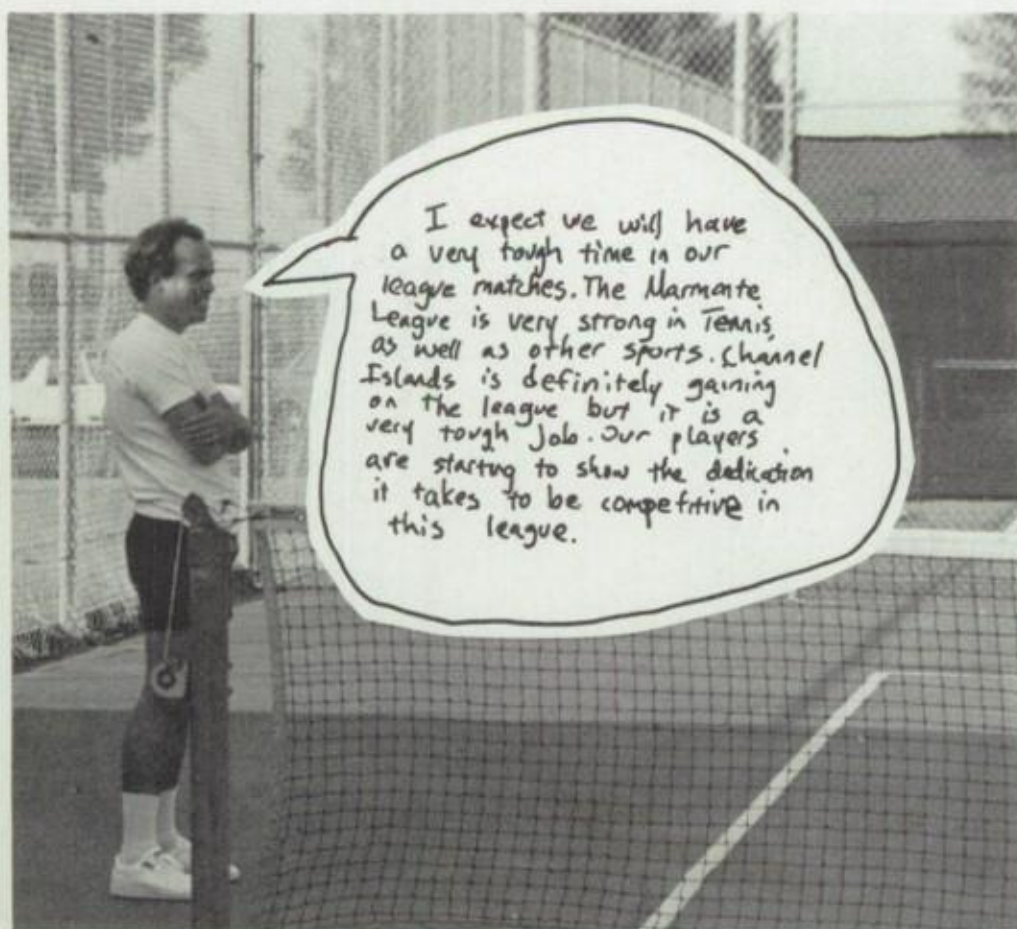 I expect we will have
a very tough time in our
league matches. The Marmonte
League is very strong in Tennis
as well as other sports. Channel
Islands is definitely gaining
on the league but it is a
very tough job. Our players
are starting to show the dedication
it takes to be competitive in
this league.